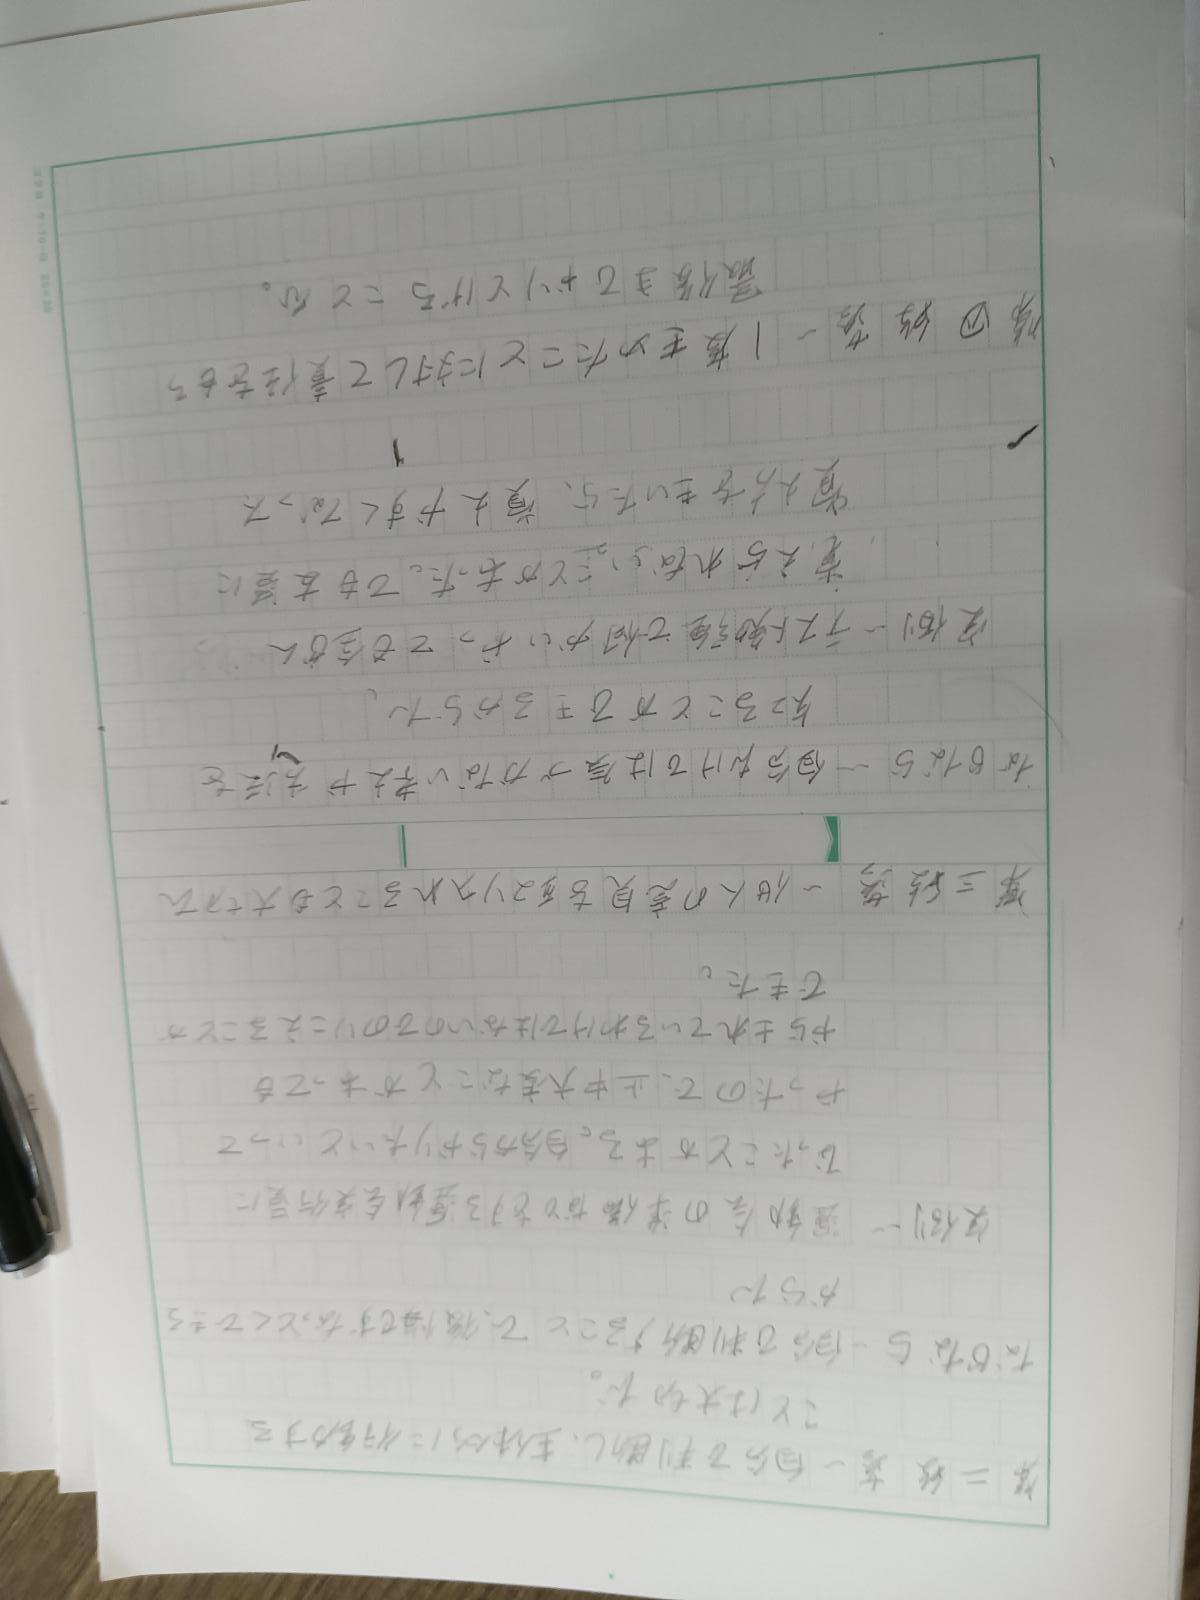 第二段落ー自分で判断し、主体的に行動する
ことは大切だ。
なぜなら ー自分で判断することで、後悔せずなっとくできる
からだ
実例ー 運動会の準備などをする運動会実行委に
なったことがある。自分からやりたいといって
やったので、止中大変なことがあっても
やらされているわけではないのでのりこえることが
できた。
第三段落 ー他人の意見を取り入れることも大切だ
なぜなら ー自分だけでは気づかない考えや方法を
知ることができるからだ。
実例ーテスト勉強で何かいやっても全然
覚えられないことがあった。でも友達に
覚え方をきいたら、覚えやすくなった
第四段落 ー1度きめたことに対して責任をもち
最後までやりとげることだ。